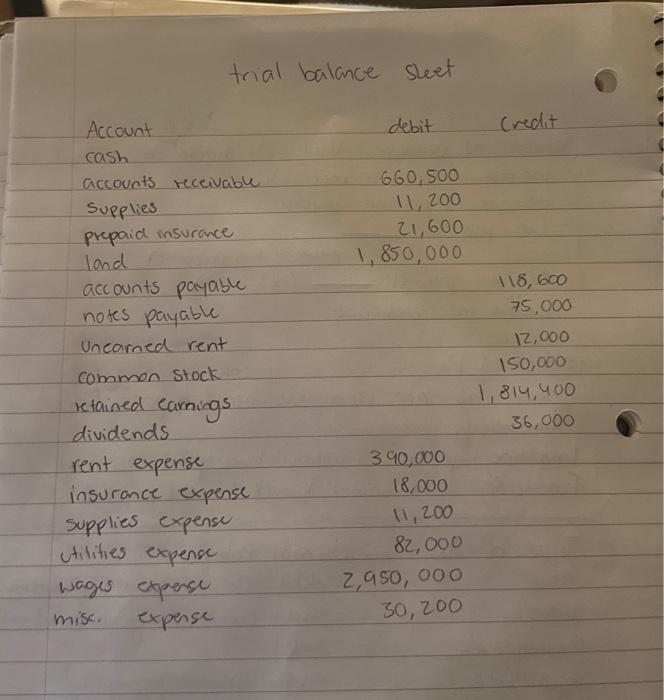 trial balance sleet
Account debit Credit
cash
accounts receivable 660,500
Supplies 11,200
prepaid insurance 21,600
land 1,850,000
accounts payable 118,600
notes payable 75,000
Unearned rent 12,000
common stock 150,000
retained earnings 1,814,400
dividends 36,000
rent expense 390,000
insurance expense 18,000
supplies expense 11,200
utilities expense 82,000
wages expense 2,950,000
misc. expense 30,200